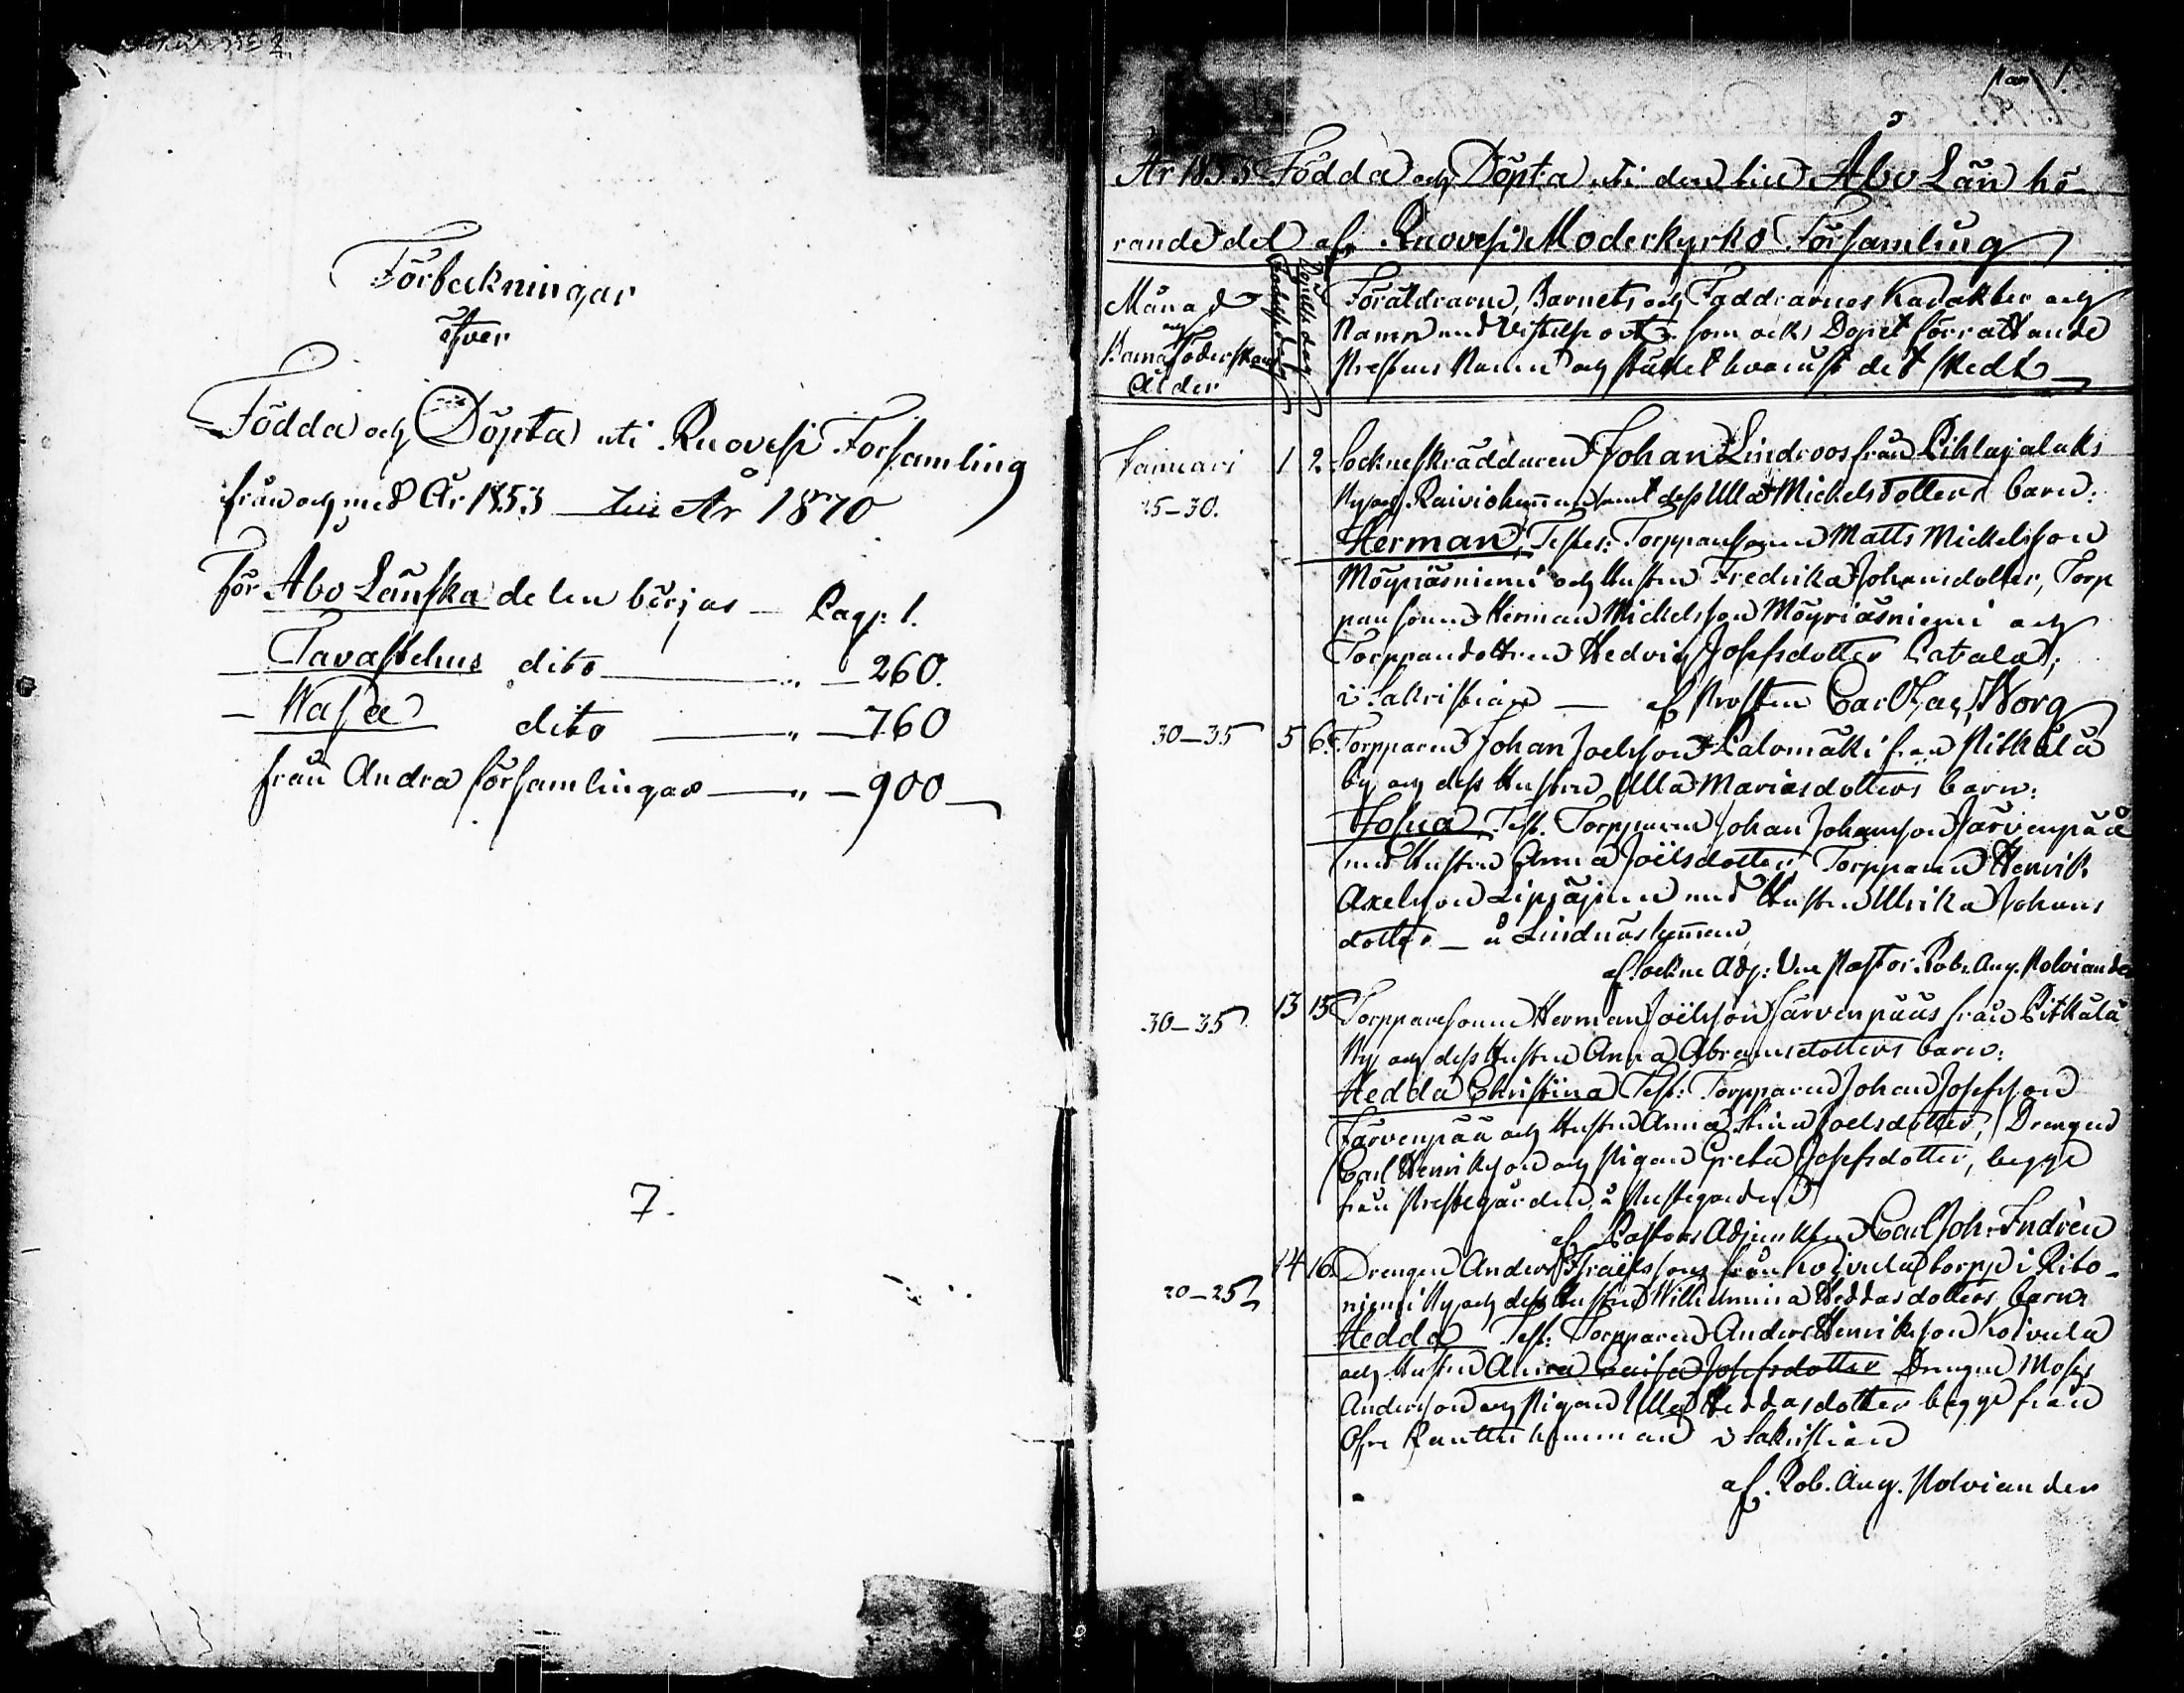 Förteckningar
öfver
Födda och Döpta uti Ruovesi Församling
från och med År 1853 till År 1870
För Åbo Länska delen börjas — Pag: 1.
— Tavastehus dito — " — 260.
— Wasa dito — " — 760
från Andra församlingar — " — 900
7.
1.
År 1853 Födda och Döpta uti den till Åbo Län hö-
rande del af Ruovesi Moderkyrko Församling
Månad
och
Barnaföderskans
Ålder
Födelse dag
Döpelse dag
Föräldrarne, Barnets och Faddrarnes Karakter och
Namn med Vistelse ort, som ock Dopet förrättande
Prestens Namn och stället hvarest det skedt
Januari 1 2. Sockneskräddaren Johan Lindroos från Pihlajalaks
25–30. By och Raivio hemman samt dess Ulla Mickelsdotters barn:
Herman, Testes: Torpparesonen Matts Mickelsson
Möyriäsniemi och Hustru Fredrika Johansdotter, Torp
paresonen Herman Mickelsson Möyriäsniemi och
Torppandottren Hedvig Josefsdotter
i Sakristian — af Prosten Carl Jac. Borg
30–35 5 6. Torpparen Johan Joelsson Salomäki från Pitkälä
by och dess Hustru Ulla Mariasdotters barn:
Josua Test. Torpparen Johan Johansson Järvenpää
med Hustru Anna Joëlsdotter Torpparen Henrik
Axelsson med Hustru Ulrika Johans
dotter — å Lindnäs hemman
af Sockne Adj: Vice Pastor Rob. Aug. Molviander
30–35 13 15 Torpparesonen Herman Joëlsson Järvenpääs från Pitkälä
By och dess Hustru Anna Abramsdotters barn:
Hedda Christina Test: Torpparen Johan Josefsson
Järvenpää och Hustru Anna Stina Joelsdotter, Drengen
Carl Henriksson och Pigan Greta Josefsdotter, begge
från Prestegården, å Prestegården
af Pastors Adjunkten Carl Joh. Indrén
20–25 14 16. Drengen Anders Israëlsson från Koivula torpp i Rito-
niemi By och dess Hustru Wilhelmina Heddasdotters barn
Hedda Test: Torpparen Anders Henriksson Koivula
och Hustru Anna Caisa Josefsdotter Drengen Moses
Andersson och Pigan Ulla Heddasdotter begge från
Öfre hemman i Sakristian
af. Rob. Aug. Molviander